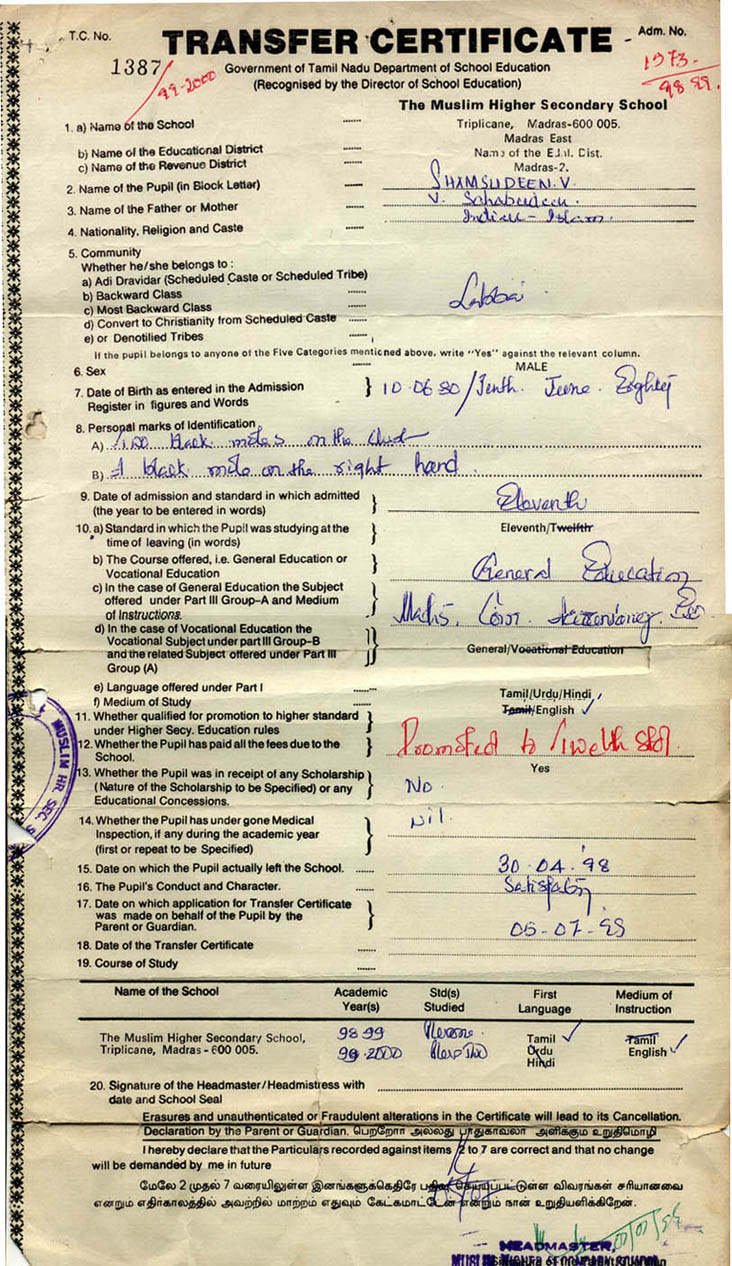 T.C. No.
TRANSFER CERTIFICATE
Adm. No.
1387
99-2000
Government of Tamil Nadu Department of School Education
(Recognised by the Director of School Education)
1973
98 99.
The Muslim Higher Secondary School
1. a) Name of the School ...... Triplicane, Madras-600 005.
Madras East
b) Name of the Educational District ......
c) Name of the Revenue District
Name of the Ednl. Dist.
Madras-2.
2. Name of the Pupil (in Block Letter) ...... SHAMSUDEEN.V
3. Name of the Father or Mother ...... V. Sahabudeen.
4. Nationality, Religion and Caste ...... Indian - Islam
5. Community
Whether he/she belongs to :
a) Adi Dravidar (Scheduled Caste or Scheduled Tribe)
b) Backward Class ...... Labbai
c) Most Backward Class ......
d) Convert to Christianity from Scheduled Caste ......
e) or Denotilied Tribes ......
If the pupil belongs to anyone of the Five Categories mentioned above, write "Yes" against the relevant column.
6. Sex ...... MALE
7. Date of Birth as entered in the Admission
Register in figures and Words } 10.06.80/Tenth June Eighty
8. Personal marks of Identification
A) Two black moles on the chest
B) A black mole on the right hand.
9. Date of admission and standard in which admitted
(the year to be entered in words) } Eleventh
10. a) Standard in which the Pupil was studying at the
time of leaving (in words)
Eleventh/Twelfth
b) The Course offered, i.e. General Education or
Vocational Education } General Education
c) In the case of General Education the Subject
offered under Part III Group-A and Medium
of Instructions. } Maths, Com. Accountancy. Eco
d) In the case of Vocational Education the
Vocational Subject under part III Group-B
and the related Subject offered under Part III
Group (A)
General/Vocational Education
e) Language offered under Part I ...... Tamil/Urdu/Hindi
f) Medium of Study ...... Tamil/English ✓
11. Whether qualified for promotion to higher standard
under Higher Secy. Education rules } Promoted to Twelth Std.
12. Whether the Pupil has paid all the fees due to the
School. } Yes
13. Whether the Pupil was in receipt of any Scholarship
(Nature of the Scholarship to be Specified) or any
Educational Concessions. } No
MUSLIM HR. SEC. S
14. Whether the Pupil has under gone Medical
Inspection, if any during the academic year
(first or repeat to be Specified) } Nil.
15. Date on which the Pupil actually left the School. ...... 30.04.98
16. The Pupil's Conduct and Character. ......
17. Date on which application for Transfer Certificate
was made on behalf of the Pupil by the
Parent or Guardian. } 05-07-99
18. Date of the Transfer Certificate ......
19. Course of Study ......
Name of the School
Academic Year(s)
Std(s) Studied
First Language
Medium of Instruction
The Muslim Higher Secondary School,
Triplicane, Madras - 600 005.
98 99
99-2000
Tamil ✓
Urdu
Hindi
Tamil
English ✓
20. Signature of the Headmaster/Headmistress with
date and School Seal
Erasures and unauthenticated or Fraudulent alterations in the Certificate will lead to its Cancellation.
Declaration by the Parent or Guardian. பெறறோர அல்லது பாதுகாவலா அளிக்கும் உறுதிமொழி
I hereby declare that the Particulars recorded against items 2 to 7 are correct and that no change
will be demanded by me in future
மேலே 2 முதல் 7 வரையிலுள்ள இனங்களுக்கெதிரே பதிவு செய்யப்பட்டுள்ள விவரங்கள் சரியானவை
எனறும் எதிர்காலத்தில் அவற்றில் மாற்றம் எதுவும் கேட்கமாட்டேன் என்றும் நான் உறுதியளிக்கிறேன்.
HEADMASTER,